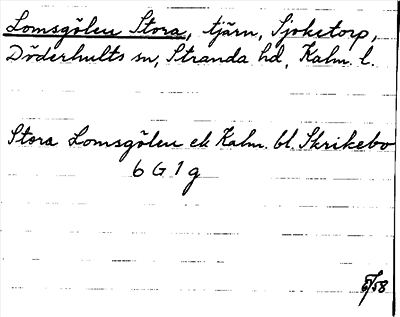 Lomsgölen Stora, tjärn, Sjöketorp,
Döderhults sn, Stranda hd, Kalm. l.
Stora Lomsgölen ek Kalm. bl. Skrikebo
6 G 1 g
5/58